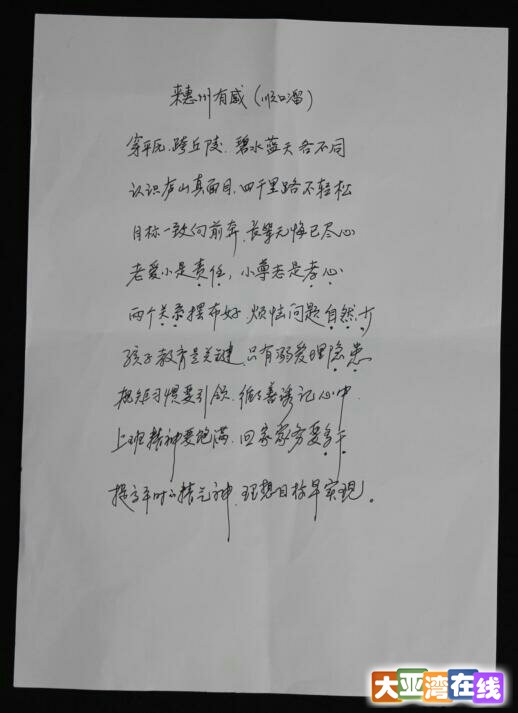 来惠州有感(顺口溜)
穿平瓦.跨丘陵.碧水蓝天各不同
认识庐山真面目.四千里路不轻松
目标一致向前奔.长辈无悔已尽心
老爱小是责任,小尊老是孝心
两个关系摆布好.烦恼问题自然少
孩子教育是关键.只有溺爱埋隐患
规矩习惯要引领.循循善诱记心中.
上班精神要饱满.回家家务要多干
提高平时的精气神.理想目标早实现。
大亚湾在线